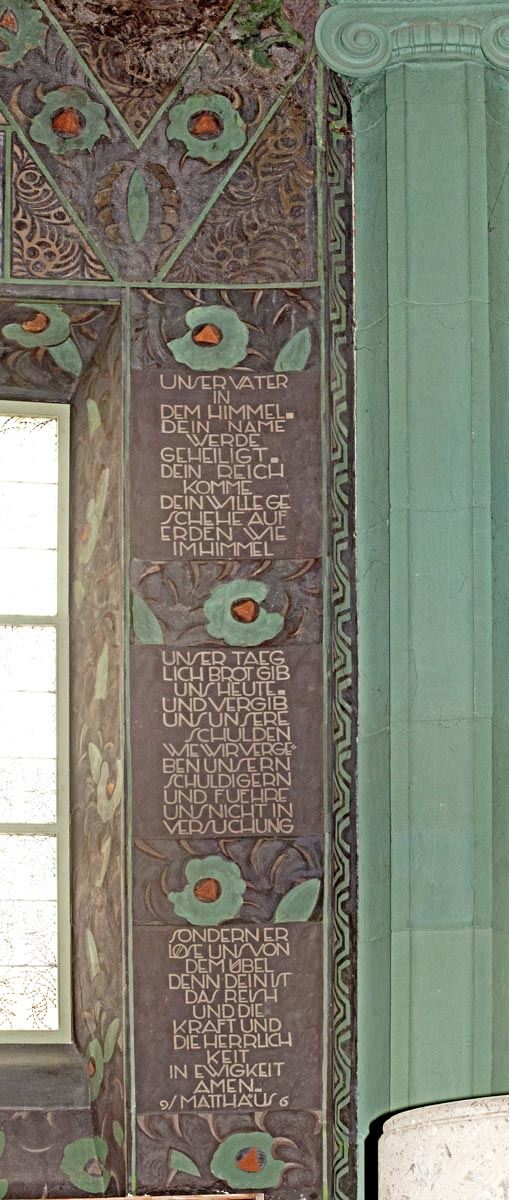 UNSER VATER
IN
DEM HIMMEL.
DEIN NAME
WERDE
GEHEILIGT.
DEIN REICH
KOMME
DEIN WILLE GE
SCHEHE AUF
ERDEN WIE
IM HIMMEL
UNSER TAEG
LICH BROT GIB
UNS HEUTE.
UND VERGIB
UNS UNSERE
SCHULDEN
WIE WIR VERGE"
BEN UNSERN
SCHULDIGERN
UND FUEHRE
UNS NICHT IN
VERSUCHUNG
SONDERN ER
LØSE UNS VON
DEM ÜBEL
DENN DEIN IST
DAS REICH
UND DIE
KRAFT UND
DIE HERRLICH
KEIT
IN EWIGKEIT
AMEN.
MATTHÄUS 6